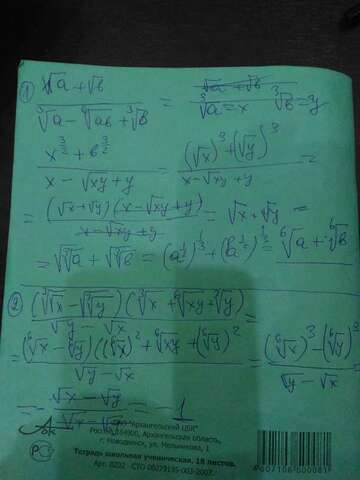 1) √a + √b / ∛a - ⁶√ab + ∛b = ∛a = x ∛b = y
x^(3/2) + b^(3/2) / x - √xy + y = (√x)³ + (√y)³ / x - √xy + y =
= (√x + √y)(x - √xy + y) / x - √xy + y = √x + √y =
= √∛a + √∛b = (a^(1/2))^(1/3) + (b^(1/2))^(1/3) = ⁶√a + ⁶√b
2) (∛√x - ∛√y)(∛x + ⁶√xy + ∛y) / √y - √x =
= (⁶√x - ⁶√y)((⁶√x)² + ⁶√xy + (⁶√y)²) / √y - √x = (⁶√x)³ - (⁶√y)³ / √y - √x
= - √x - √y / √x - √y = -1
ОАО "Архангельский ЦБК"
Россия, 164900, Архангельская область,
г. Новодвинск, ул. Мельникова, 1
Тетрадь школьная ученическая, 18 листов.
Арт. 8202 СТО 00279195-003-2007.
4607108500081